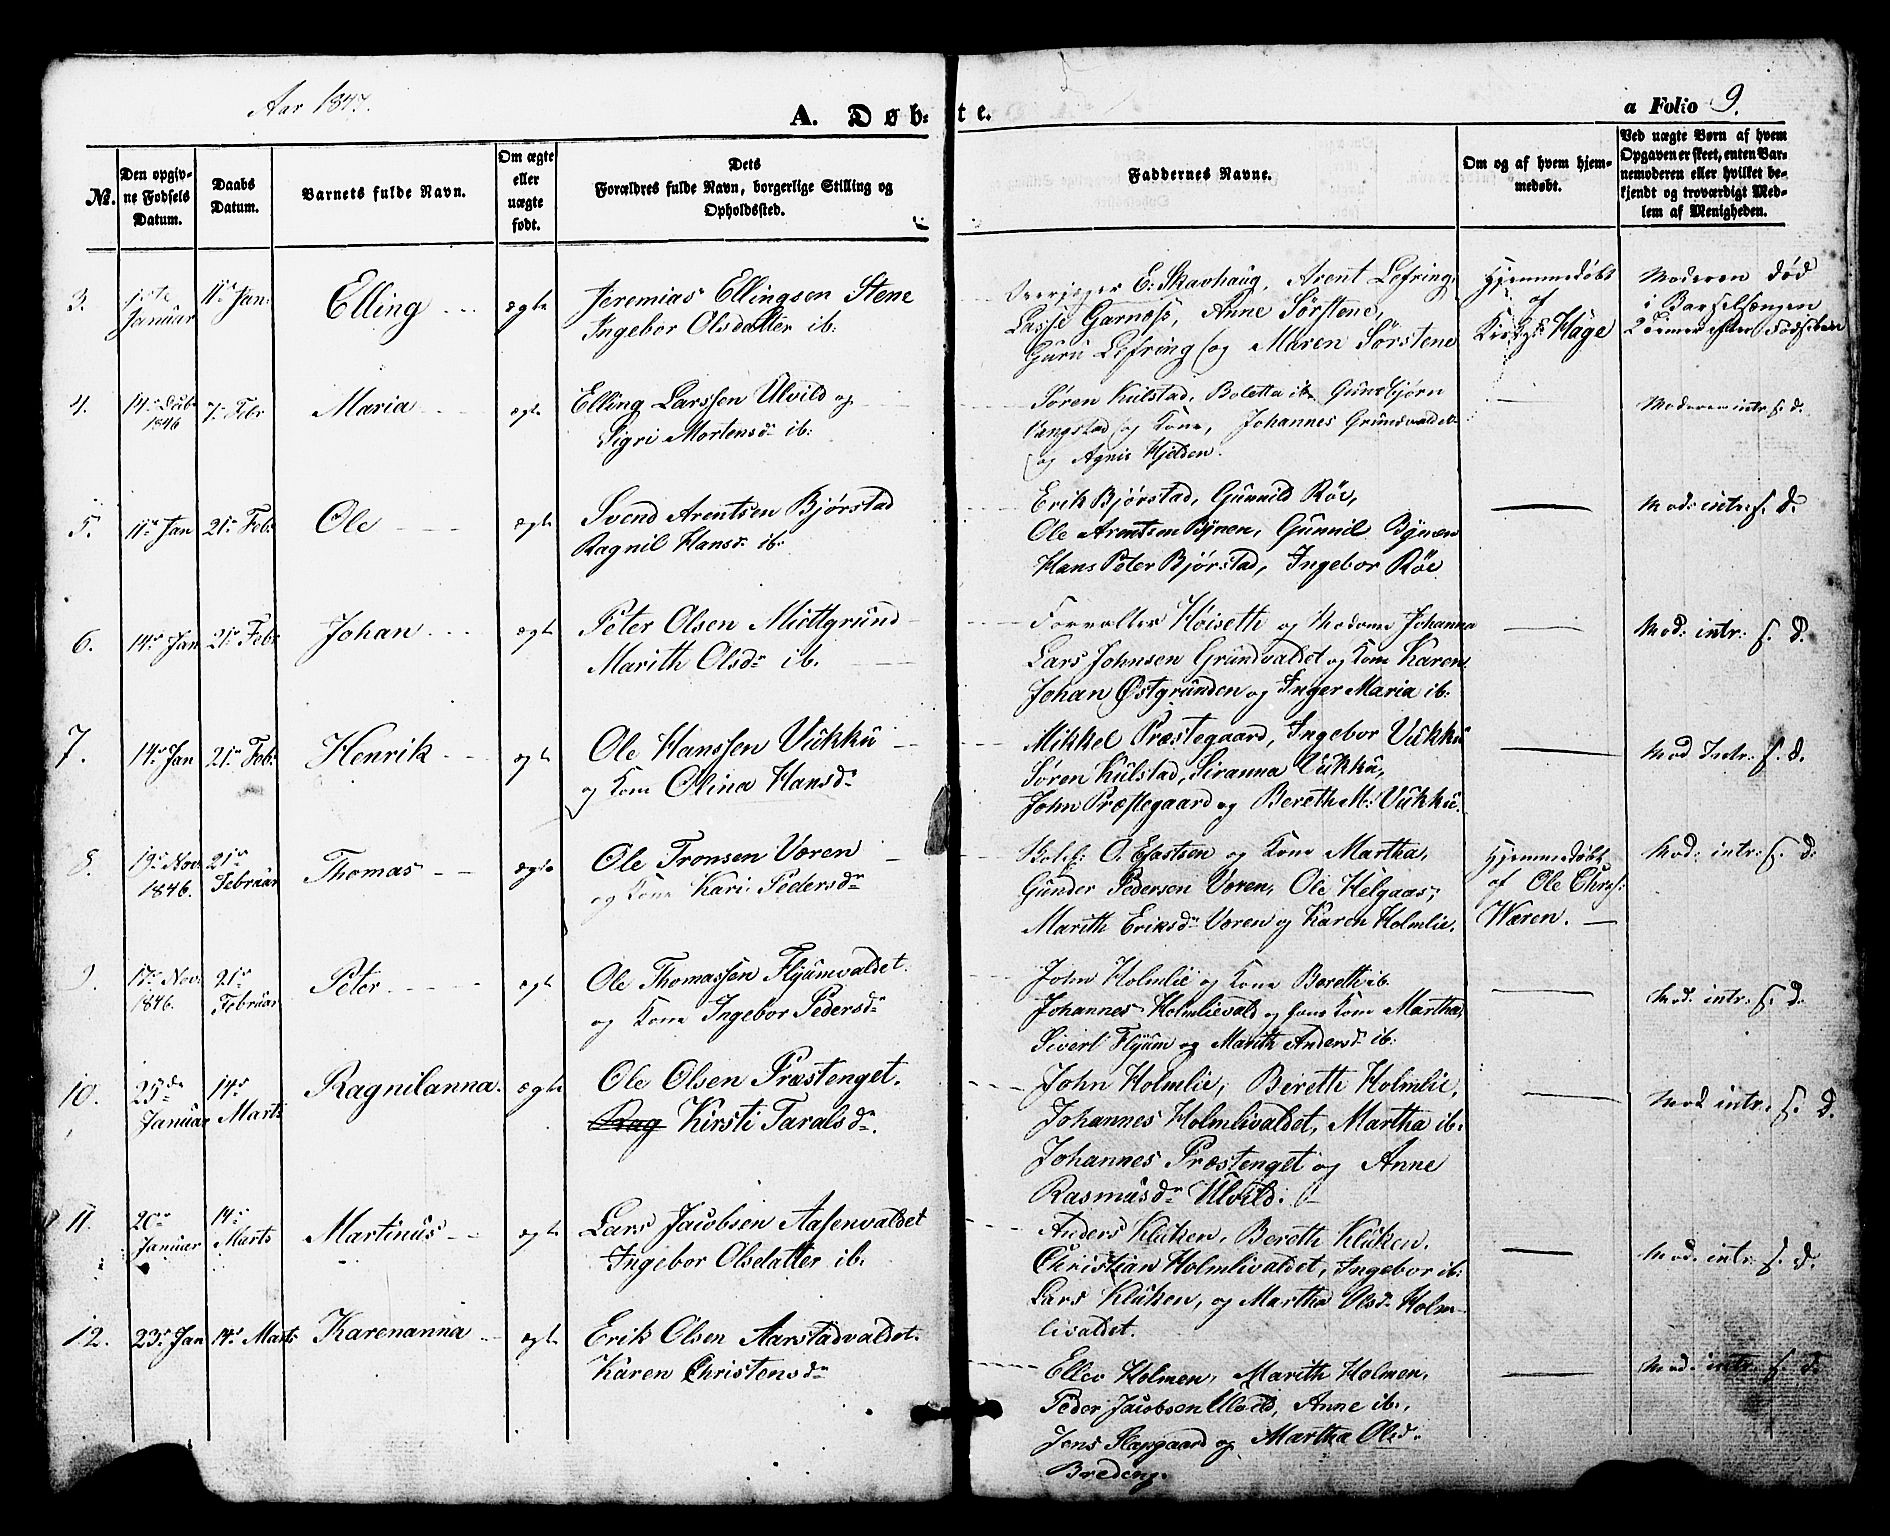 Aar 1847.
A. Døb-te.
a Folio 9.
No.
Den opgiv-
ne Fødsels
Datum.
Daabs
Datum.
Barnets fulde Navn.
Om ægte
eller
uægte
født.
Dets
Forældres fulde Navn, borgerlige Stilling og
Opholdssted.
Faddernes Navne.
Om og af hvem hjem-
medøbt.
Ved uægte Børn af hvem
Opgaven er skeet, enten Bar-
nemoderen eller hvilket be-
kjendt og troværdigt Med-
lem af Menigheden.
3.
Januar
11te Jan:
Elling
ægte
Jeremias Ellingsen Stene
Ingebor Olsdatter ib:
E: Skavhaug, Arent Lefring
Lasse Garnæss, Anne Sørstene,
Guru Lefring og Maren Sørstene
Hjemmedøbt
af
Hage
Moderen død
i Barselsengen
4.
14de
1846
7de Febr
Maria
ægte
Elling Larssen Ulvild og
Sigri Mortensdr ib:
Søren Kulstad, Boletta ib, Gunbjørn
og Kone, Johannes Grundvaldet
og Agnis Hjelden.
Moderen intr. f. d.
5.
11te Jan
21de Feb:
Ole
ægte
Svend Arentsen Bjørstad
Ragnil Hansdr ib:
Erik Bjørstad, Gunnild Røe,
Ole Arentsen Bynen, Gunnil Bynen
Hans Peter Bjørstad, Ingebor Røe
Mod: intr: f. d.
6.
14de Jan
21de Feb:
Johan
ægte
Peter Olsen Midtgrund
Marith Olsdr ib.
Forvalter Høiseth og Madame Johanna
Lars Johnsen Grundvaldet og Kone Karen
Johan Østgrunden og Inger Maria ib:
Mod: intr: f. d.
7.
14de Jan
21de Feb:
Henrik
ægte
Ole Hanssen Vukku
og Kone Olina Hansdr
Mikkel Præstegaard, Ingebor Vukku
Søren Kulstad, Siranna Vukku,
John Præstegaard og Bereth M: Vukku.
Mod Intr: f. d.
8.
19de Nov:
1846.
21de
Februar
Thomas
ægte
Ole Tronsen Voren
og Kone Kari Pedersdr
O. Estsen og Kone Martha,
Gunder Pedersen Voren, Ole Helgaas,
Marith Eriksdr Voren og Karen Holmlie.
Hjemmedøbt
af Ole Chrs:
Wæren.
Mod: intr: f. d:
9.
17de Nov:
1846.
21de
Februar
Peter
ægte
Ole Thomassen Flyumvaldet
og Kone Ingebor Pedersdr
John Holmlie og Kone Bereth ib.
Johannes Holmlievald og hans Kone Martha,
Sivert Flyum og Marith Andersdr ib:
Mod: intr: f. d.
10.
25de
Januar
14de
Marts
Ragnilanna.
ægte
Ole Olsen Præstenget.
Rag Kirsti Taralsdr.
John Holmlie, Bereth Holmlie,
Johannes Holmlivaldet, Martha ib:
Johannes Præstenget og Anne
Rasmusdr Ulvild.
Mod intr: f. d.
11.
20de
Januar
14de
Marts
Martinus
ægte
Lars Jacobsen Aasenvaldet
Ingebor Olsdatter ib:
Anders Kluken, Bereth Kluken,
Christian Holmlivaldet, Ingebor ib:
Lars Kluken, og Martha Olsd: Holm-
livaldet.
Mod: intr: f. d.
12.
23de Jan
14de Marts
Karenanna
ægte
Erik Olsen Aarstadvaldet.
Karen Christensdr
Ellev Holmen, Marith Holmen,
Peder Jacobsen Ulvild, Anne ib:,
Jens Slapgaard og Martha Olsd:
Breding.
Mod: intr: f. d.